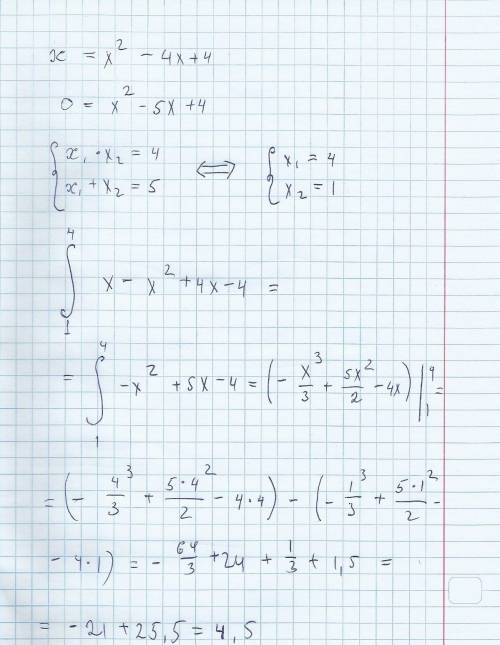 x = x² - 4x + 4
0 = x² - 5x + 4
{ x₁ · x₂ = 4 ⟺ { x₁ = 4
{ x₁ + x₂ = 5 { x₂ = 1
∫₁⁴ x - x² + 4x - 4 =
= ∫₁⁴ -x² + 5x - 4 = (- x³/3 + 5x²/2 - 4x) |₁⁴ =
= (- 4³/3 + 5·4²/2 - 4·4) - (- 1³/3 + 5·1²/2 -
- 4·1) = - 64/3 + 24 + 1/3 + 1,5 =
= -21 + 25,5 = 4,5